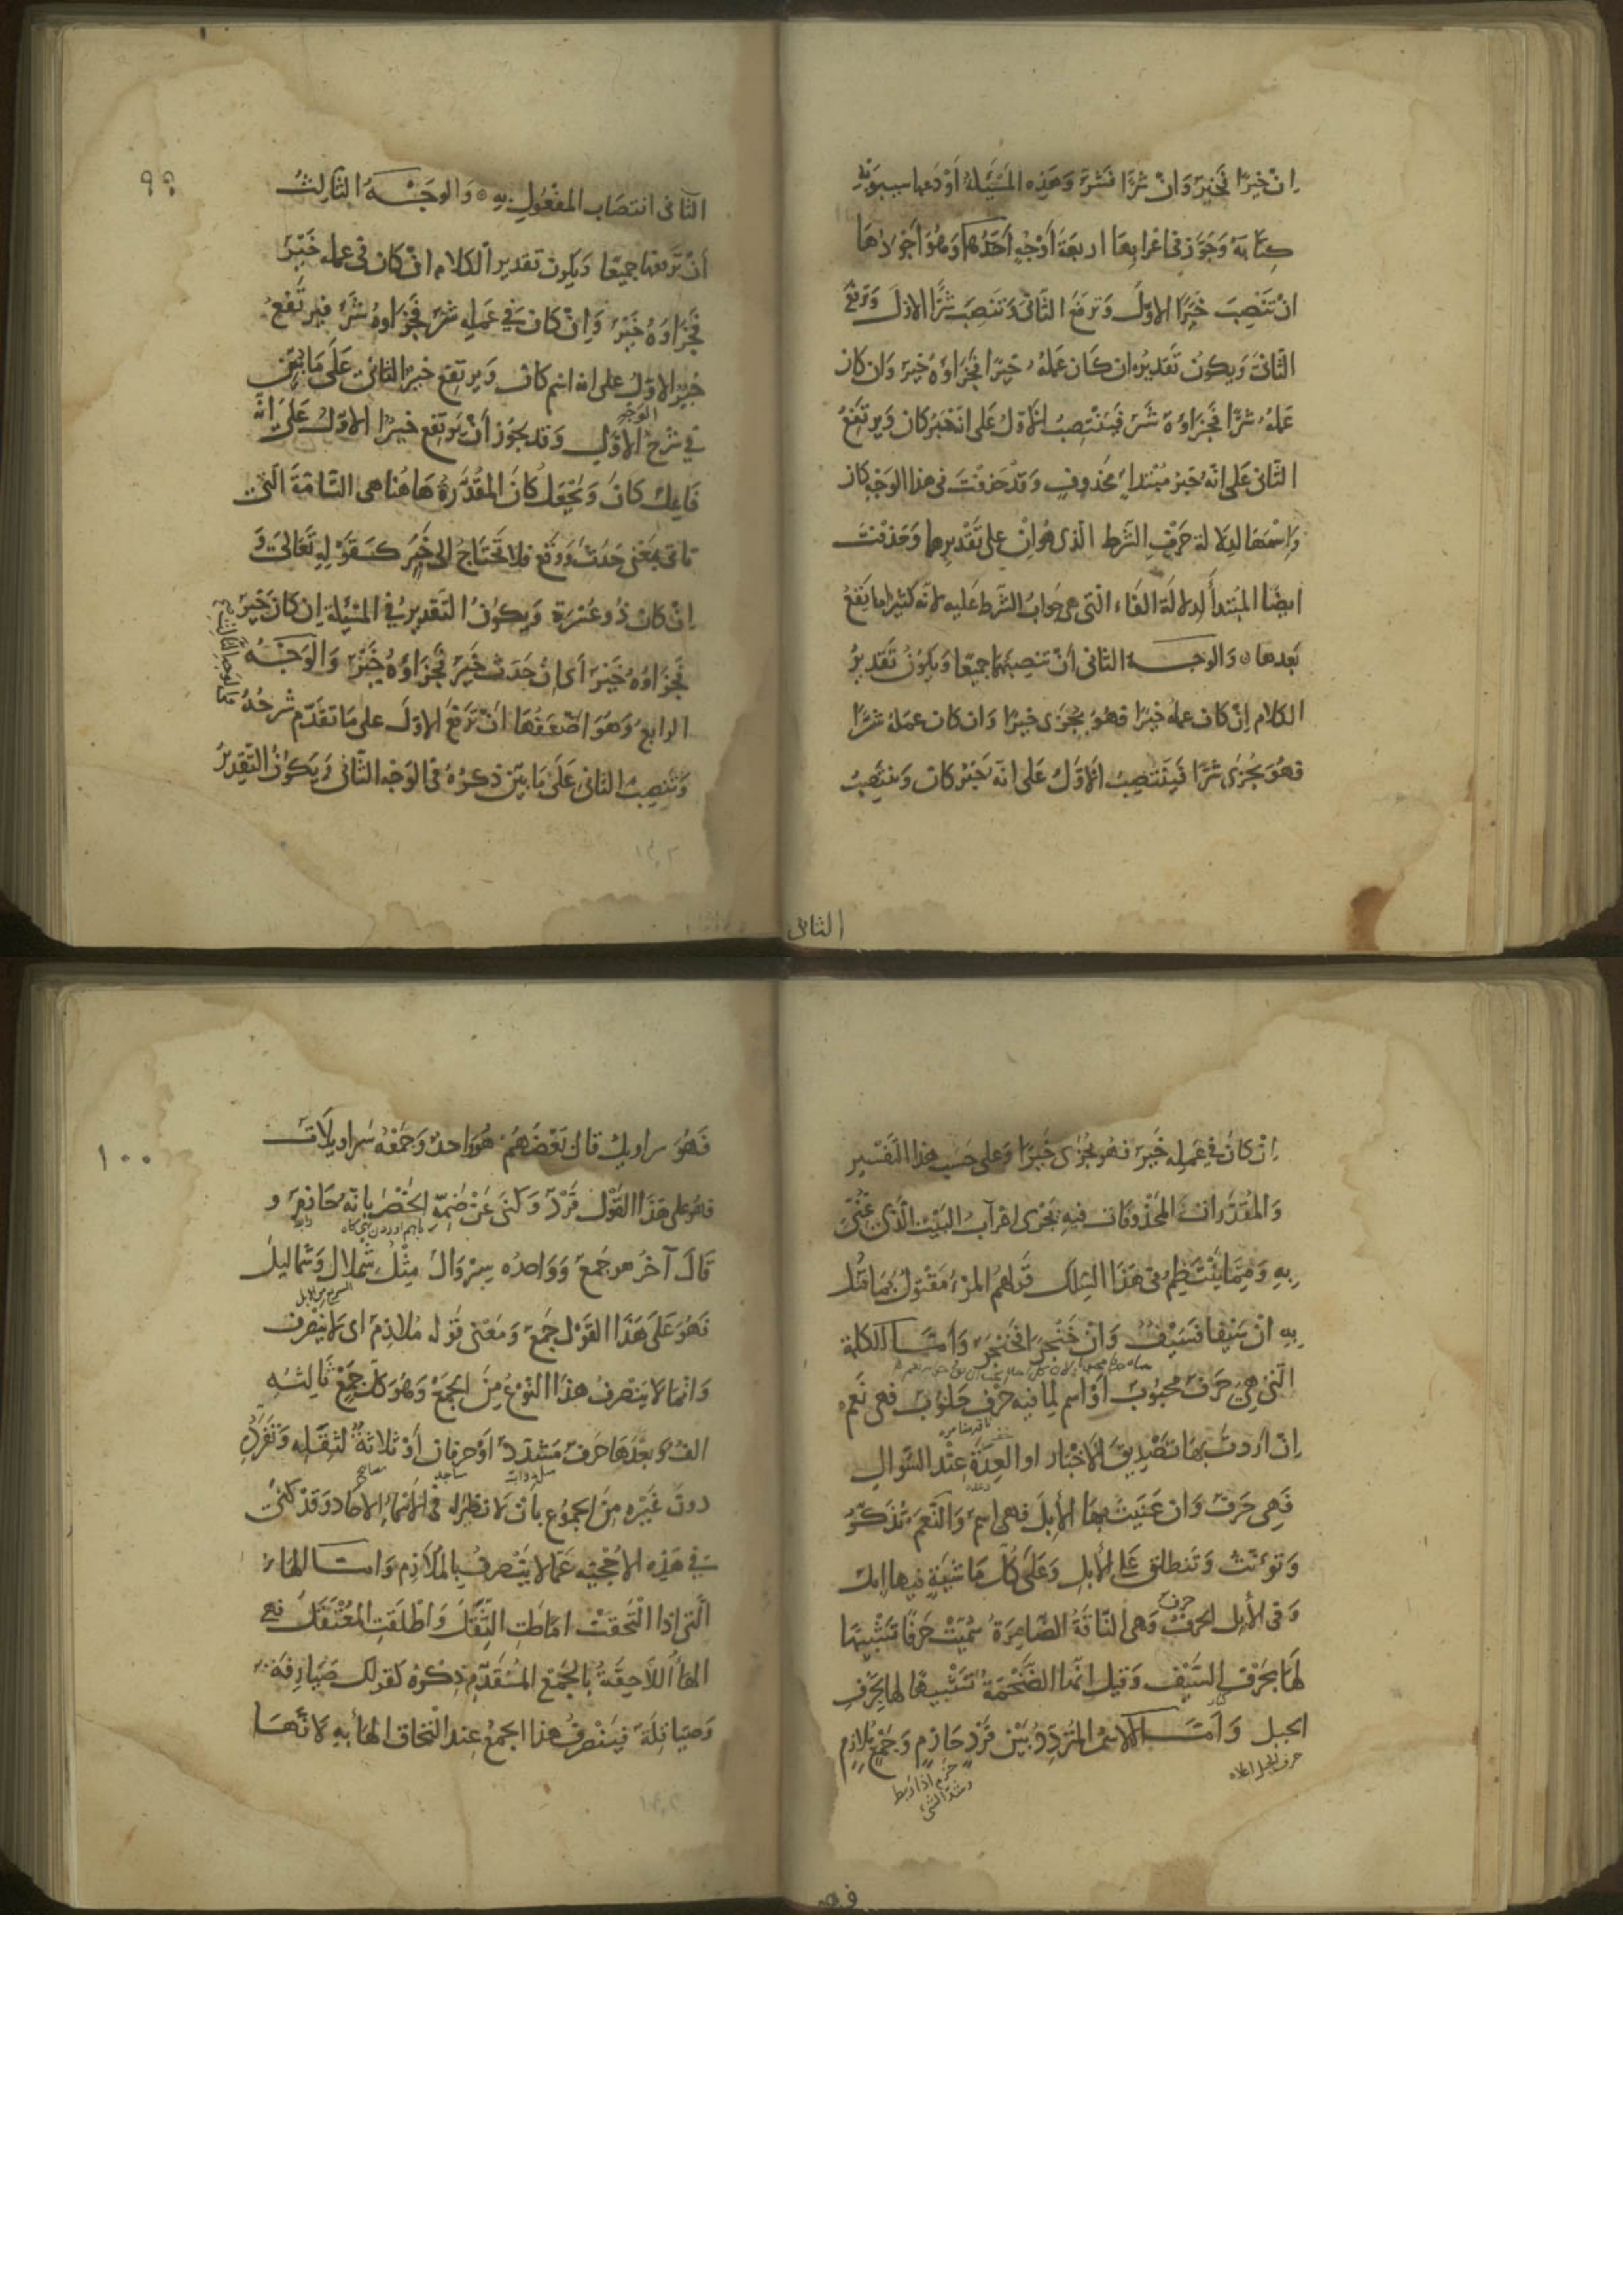 ان خيرًا فخيرٌ وَانْ شرًّا فشرٌّ وَهَذِه المَسْئِلةُ أوْدَعها سيبويْه
كِتَابَهُ وَجَوَّزَ في اعْرَابِهَا اربعَةَ أوْجُهٍ أحَدُهَا وَهُوَ أجْوَدُهَا
انْ تَنْصِبَ خَيْرًا الاوّلَ وَتَرْفعُ الثّانى وَتَنصِبَ شرًّا الاوّلَ وَتَرْفعَ
الثّانى وَيكون تَقديرُه ان كَان عَمَلُه خيرًا فجَزاؤهُ خيرٌ وَان كان
عَمَلُهُ شرًّا فجَزاؤهُ شَرٌّ فَيَنْتَصِبُ الاوّلُ عَلى انّه خَبَرُ كان وَيرتَفِعُ
الثّانى عَلى انّهُ خَبَرُ مُبْتَداءٍ محْذوفٍ وَقد حَذفْتَ في هذا الوَجْه كان
وَاسْمَهَا لدِلالة حَرْفِ الشّرط الّذى هُو ان على تَقْدِيرِهِما وَحَذفْتَ
ايضًا المُبْتَدأ لدلالة الفاء التى هى جوابُ الشّرط عَليه لانّه كثيرًا ما يَقعُ
بَعدها وَالوجه الثانى أنْ تنصِبَهُمَا جميعًا وَيكونُ تَقديرُ
الكلام اِنْ كانَ عملُه خَيْرًا فهُوَ يُجْزى خيرًا وَان كان عمَلهُ شرًّا
فهُوَ يُجْزى شرًّا فَيَنْتصِبُ الاوّلُ عَلى انّه خَبَرُ كان وَينتَصِبُ
الثانى
٩٩
الثّانى انتصَابَ المفعُولِ بهِ وَالوَجْهُ الثّالِثُ
أنْ تَرفعَهَا جميعًا وَيكون تقديرُ الكلام ان كان فى عمله خَيْرٌ
فجَزاؤهُ خَيْرٌ وَاِنْ كان فى عَمَلِه شرٌّ فجَزاؤهُ شَرٌّ فيَرتَفعُ
خَيْرٌ الاوّلُ على انه اسْم كان وَيرتفِع خيرٌ الثّانى عَلَى مَا بُيِّن
فى شرْح الوَجْه الاوّلِ وَقد يجُوز أنْ يَرْتَفِع خيرٌ الاوّل عَلى انّه
فَاعِلُ كانَ وَتُجْعَلُ كانَ المقدّرةُ هَاهُنا هى التّامّة الّتى
تأتى بمَعْنى حَدث وَوقع فلا تَحْتَاجُ الى خَبَرٍ كَقَوْلِهِ تَعَالَى وَ
اِنْ كان ذُو عُسْرَة وَيكونُ التّقديرُ في المَسْئِلة ان كان خَيْرٌ
فجَزاؤهُ خَيْرٌ اى ان حَدَث خَيْرٌ فجَزاؤهُ خَيْرٌ وَالوَجْهُ
الرابع وَهُوَ اضْعَفُهَا انْ تَرْفَعَ الاوّلَ على مَا تقدّم شرْحُهُ
وَتَنْصِب الثانى عَلَى مَا بُيِّن ذكرُهُ فى الوَجْه الثّانى وَيَكونُ التّقديرُ
اِنْ كانَ في عَمَلِه خَيْرٌ فهُوَ يُجْزى خَيْرًا وَعلى حَسَب هذا التّفسير
وَالمُقَدّرات المحْذوفَات فيهِ يَجْرى اعْرَابُ البَيْتِ الّذى غُنِّىَ
بِهِ وَممّا يَنْتظِمُ فى هَذَا السِّلك قولهُم المَرْءُ مَقتولٌ بمَا قَتَل
بِهِ انْ سَيْفًا فَسَيْفٌ وَانْ خَنْجَرًا فخَنْجَرٌ وَأمّا الكلمة
الّتى هى حَرْفٌ محبُوبٌ أو اسْم لِما فيه حَرْفٌ حَلُوبٌ فهى نَعَم
اِنْ اَردْتَ بهَا تصْديقَ الاخْبار او العِدَةَ عِنْد السُّؤالِ
فَهِى حَرْفٌ وَان عَنَيتَ بهَا الأبِلَ فهى اسْمٌ وَالنَّعَم تُذكّرُ
وَتؤنّث وَتنطلق عَلى الأبِل وَعَلَى كُلّ مَاشِيَةٍ فيها ابِل
وَفى الأبِل الحَرْفُ وَهى النّاقةُ الضّامِرَةُ سُمّيَتْ حَرْفًا تَشْبِيهًا
لهَا بحَرْفِ السَّيْف وَقيل انّها الضَّخْمَةُ تَشْبِيهًا لهَا بحَرْف
الجبل وَأمّا الاسْمُ المُتَردِّدُ بَيْن فَرْدٍ حَازِمٍ وَجَمْعٍ مُلازِمٍ
حرف الجبل اعلاه
حزم اذا ربط
وشد الشئ
فهو
١٠٠
فَهُوَ سراويل قال بَعْضُهُمْ هُوَ واحدٌ وَجَمْعُه سَراويلات
فهُوَ على هَذَا القَوْل فَرْدٌ وَكنَى عَنْ ضَمّه الخَصْر بانّه حَازِم وَ
قَالَ آخرُ هو جَمْعٌ وَوَاحِدُه سِرْوَالٌ مِثْلُ شِمْلالٍ وَشَماليل
فَهُوَ عَلَى هَذَا القَوْل جَمْعٌ وَمَعْنى قوْله مُلازِم اى لا يَنْصَرف
وَانما لا يَنْصرفُ هذا النَّوْعُ مِنَ الجَمْعِ وَهُوَ كلّ جَمْعٍ ثَالِثُهُ
الفٌ وَبعْدَها حَرْفٌ مُشَدّدٌ أوْ حرفان أوْ ثلاثَةٌ لثِقَلِهِ وَتَفَرُّدِهِ
دونَ غَيْرِه مِن الجمُوع بأن لا نظيْر له فى الأسْمَاء الاحاد وَقدْ كَنَى
فى هَذِه الاحْجِيّة عَمّا لا يَنْصرفُ بِالملازِم وَامّا الهَاء
الّتى اذا الْتَحقَتْ امَاطتِ الثِّقَلَ وَاطْلَقَتِ المُعْتَقَلَ فهى
الهاءُ اللّاحِقَةُ بِالجَمْعِ المُتقدّم ذِكْرُهُ كقولك صَيَارِفَة
وَصيَاقِلَةٌ فيَنْصرفُ هذا الجَمْعُ عِنْد الْتحَاق الهَاء بِهِ لانّهَا